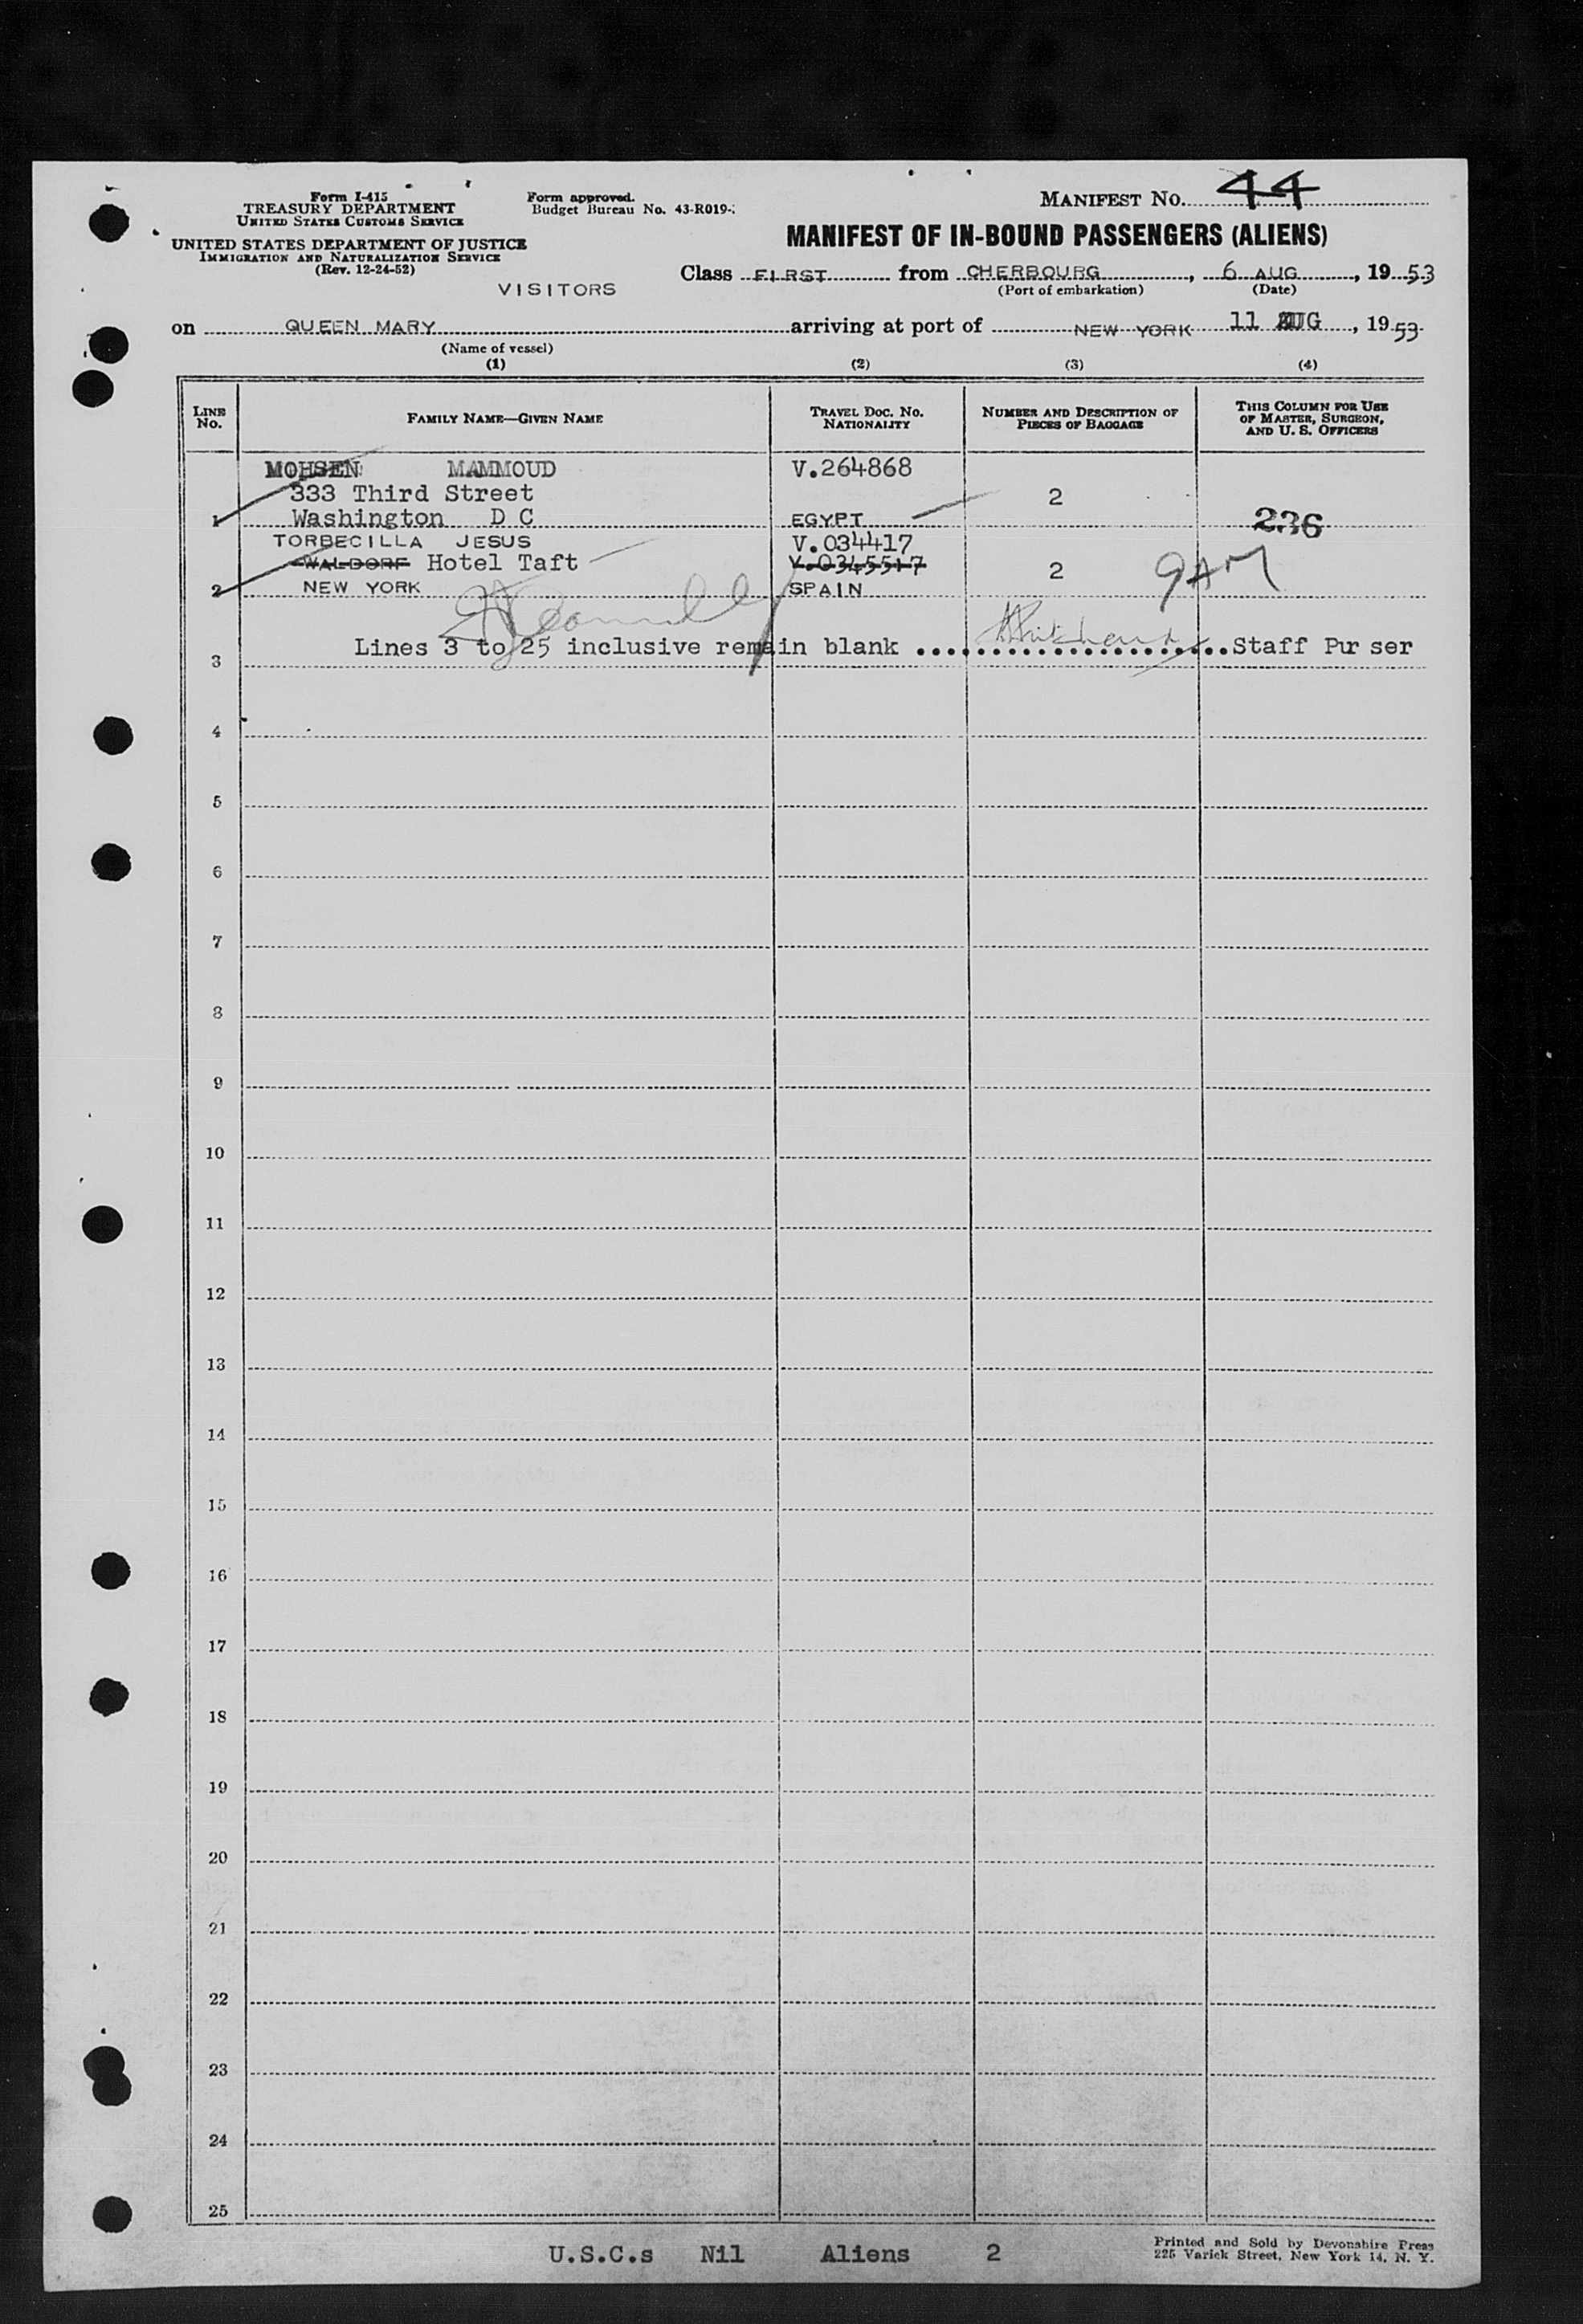 Form I-415
TREASURY DEPARTMENT
UNITED STATES CUSTOMS SERVICE
UNITED STATES DEPARTMENT OF JUSTICE
IMMIGRATION AND NATURALIZATION SERVICE
(Rev. 12-24-52)
Form approved.
Budget Bureau No. 43-R019-
MANIFEST NO. 44
MANIFEST OF IN-BOUND PASSENGERS (ALIENS)
Class FIRST from CHERBOURG, 6 AUG, 1953
(Port of embarkation) (Date)
VISITORS
on QUEEN MARY arriving at port of NEW YORK 11 AUG, 1953
(Name of vessel)
(1) (2) (3) (4)
LINE NO. FAMILY NAME—GIVEN NAME TRAVEL DOC. NO. NATIONALITY NUMBER AND DESCRIPTION OF PIECES OF BAGGAGE THIS COLUMN FOR USE OF MASTER, SURGEON, AND U. S. OFFICERS
MOHSEN MAMMOUD V.264868
333 Third Street 2
1 Washington D C EGYPT 236
TORBECILLA JESUS V.034417
WALDORF Hotel Taft V.0345517 2 9AM
2 NEW YORK SPAIN
Lines 3 to 25 inclusive remain blank .................... Staff Purser
3
4
5
6
7
8
9
10
11
12
13
14
15
16
17
18
19
20
21
22
23
24
25
U.S.C.s Nil Aliens 2
Printed and Sold by Devonshire Press
225 Varick Street, New York 14, N. Y.